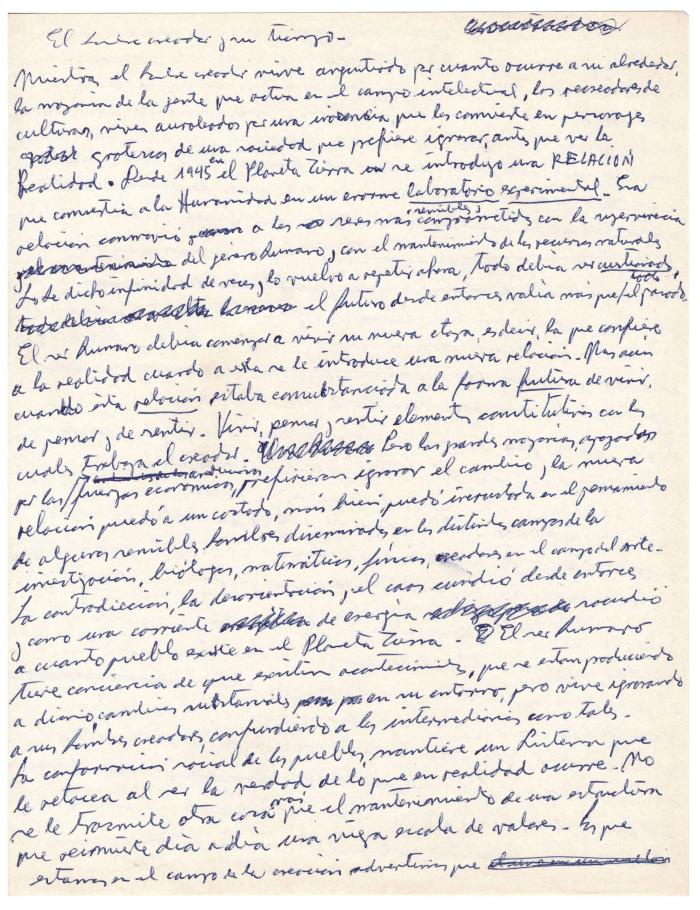 El hombre creador y su tiempo.-
Mientras el hombre creador vive angustiado por cuanto ocurre a su alrededor,
la mayoría de la gente que actúa en el campo intelectual, los recreadores de
cultura, viven aureolados por una que los convierte en personajes
grotescos de una sociedad que prefiere ignorar, antes que ver la
Realidad. Desde 1945 en el Planeta Tierra se introdujo una RELACION
que convertía a la Humanidad en un enorme laboratorio experimental. Esa
relación conmovió a los seres más sensibles, comprometidos con la supervivencia
del género humano, con el mantenimiento de los recursos naturales
Lo he dicho infinidad de veces, y lo vuelvo a repetir ahora, todo debía ser cuestionado,
el futuro desde entonces valía más que todo el pasado.
El ser humano debía comenzar a vivir su nueva etapa, es decir, la que confiere
a la realidad cuando a esta se le introduce una nueva relación.- Mas aún
cuando ésta relación estaba consustanciada a la forma futura de vivir,
de pensar y de sentir.- Vivir, pensar y sentir elementos constitutivos con los
cuales trabaja el creador. Pero las grandes mayorías, apoyadas
por las fuerzas económicas, prefirieron ignorar el cambio, y la nueva
relación quedó a un costado, más bien quedó incrustada en el pensamiento
de algunos sensibles hombres diseminados en los distintos campos de la
investigación, biólogos, matemáticos, físicos, creadores en el campo del arte.-
La contradicción, la desorientación, y el caos cundió desde entonces
y como una corriente de energía sacudió
a cuanto pueblo existe en el Planeta Tierra.- El ser humano
tiene conciencia de que existen acontecimientos, que se estan produciendo
a diario, cambios substanciales en su entorno, pero vive ignorando
a sus hombres creadores, confundiendo a los intermediarios como tales.-
La conformación social de los pueblos, mantiene un Sistema que
le retacea al ser la verdad de lo que en realidad ocurre.- No
se le trasmite otra cosa más que el mantenimiento de una estructura
que reconvierte día a día una vieja escala de valores.- Los que
estamos en el campo de la creación advertimos que